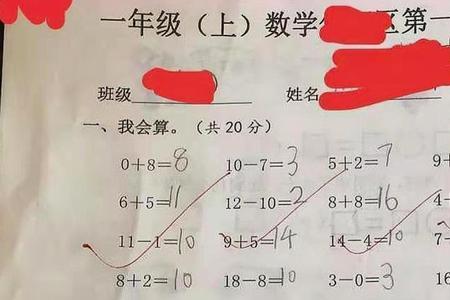 一年级（上）数学 区第一
班级 姓名
一、我会算。（共20分）
0+8=8 10-7=3 5+2=7 9+
6+5=11 12-10=2 8+8=16 4-
11-1=10 9+5=14 14-4=10 7-
8+2=10 18-8=10 3-0=3 16